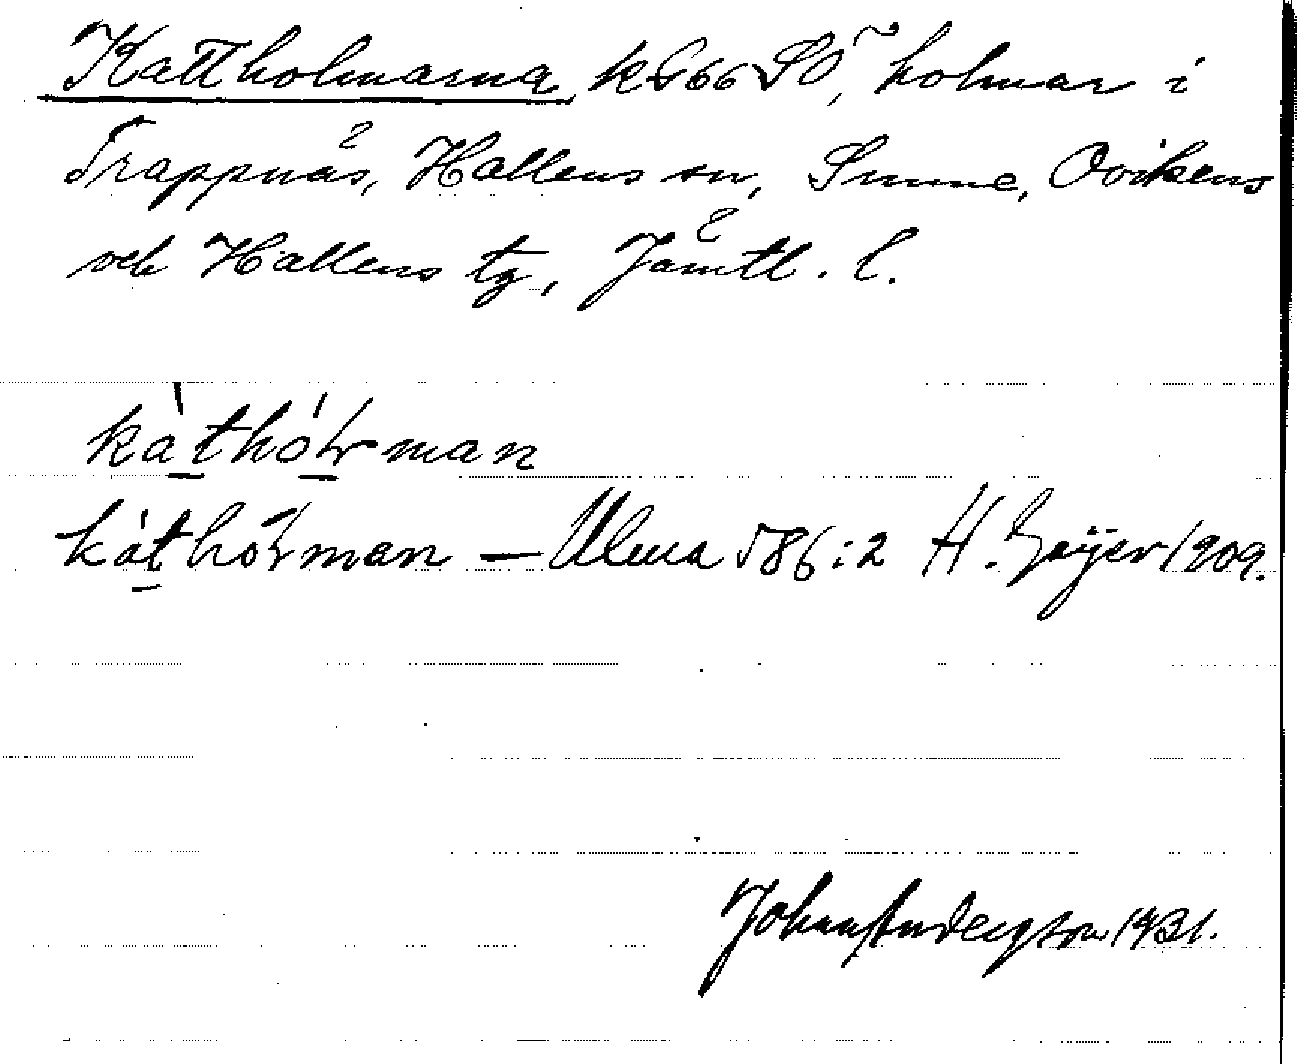 Kattholmarna k S66 SO, holmar i
Trappnäs, Hallens sn, Sunne, Ovikens
och Hallens tg, Jämtl. l.
kàthóɽman
kàthòɽman — Ulma 586:2 H. Geijer 1909.
Johan Anderson 1931.